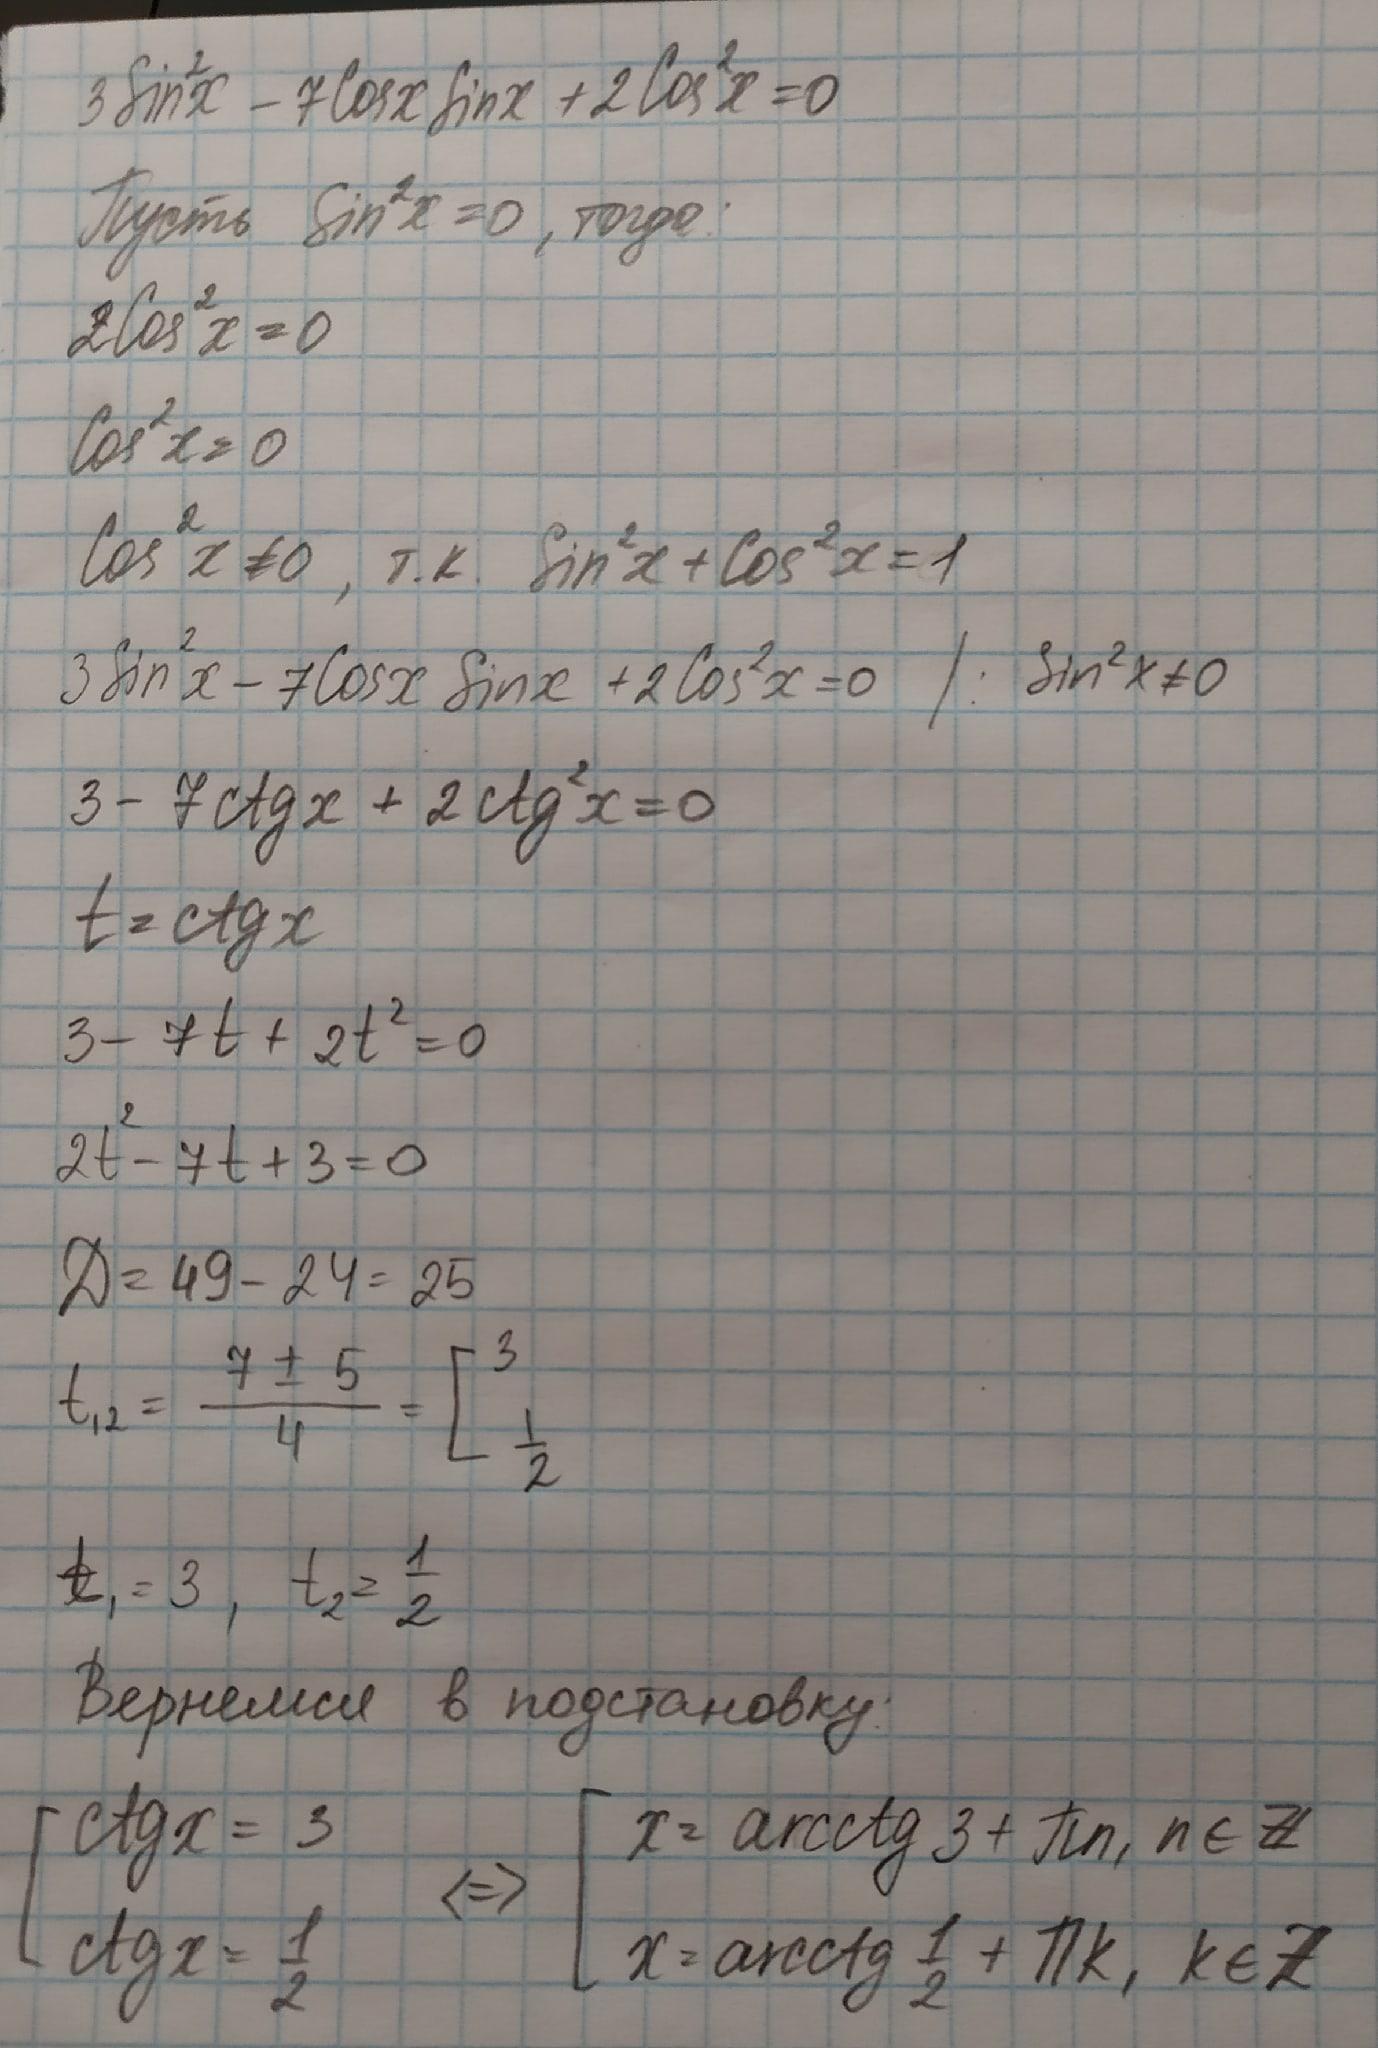 3Sin²x - 7Cosx Sinx + 2Cos²x = 0
Пусть Sin²x = 0, тогда:
2Cos²x = 0
Cos²x = 0
Cos²x ≠ 0, т.к. Sin²x + Cos²x = 1
3Sin²x - 7Cosx Sinx + 2Cos²x = 0 /: Sin²x ≠ 0
3 - 7ctgx + 2ctg²x = 0
t = ctgx
3 - 7t + 2t² = 0
2t² - 7t + 3 = 0
D = 49 - 24 = 25
t₁,₂ = (7 ± 5)/4 = [ 3 1/2
t₁ = 3, t₂ = 1/2
Вернемся в подстановку:
[ ctgx = 3 <=> [ x = arcctg 3 + πn, n ∈ Z
ctgx = 1/2 x = arcctg 1/2 + πk, k ∈ Z